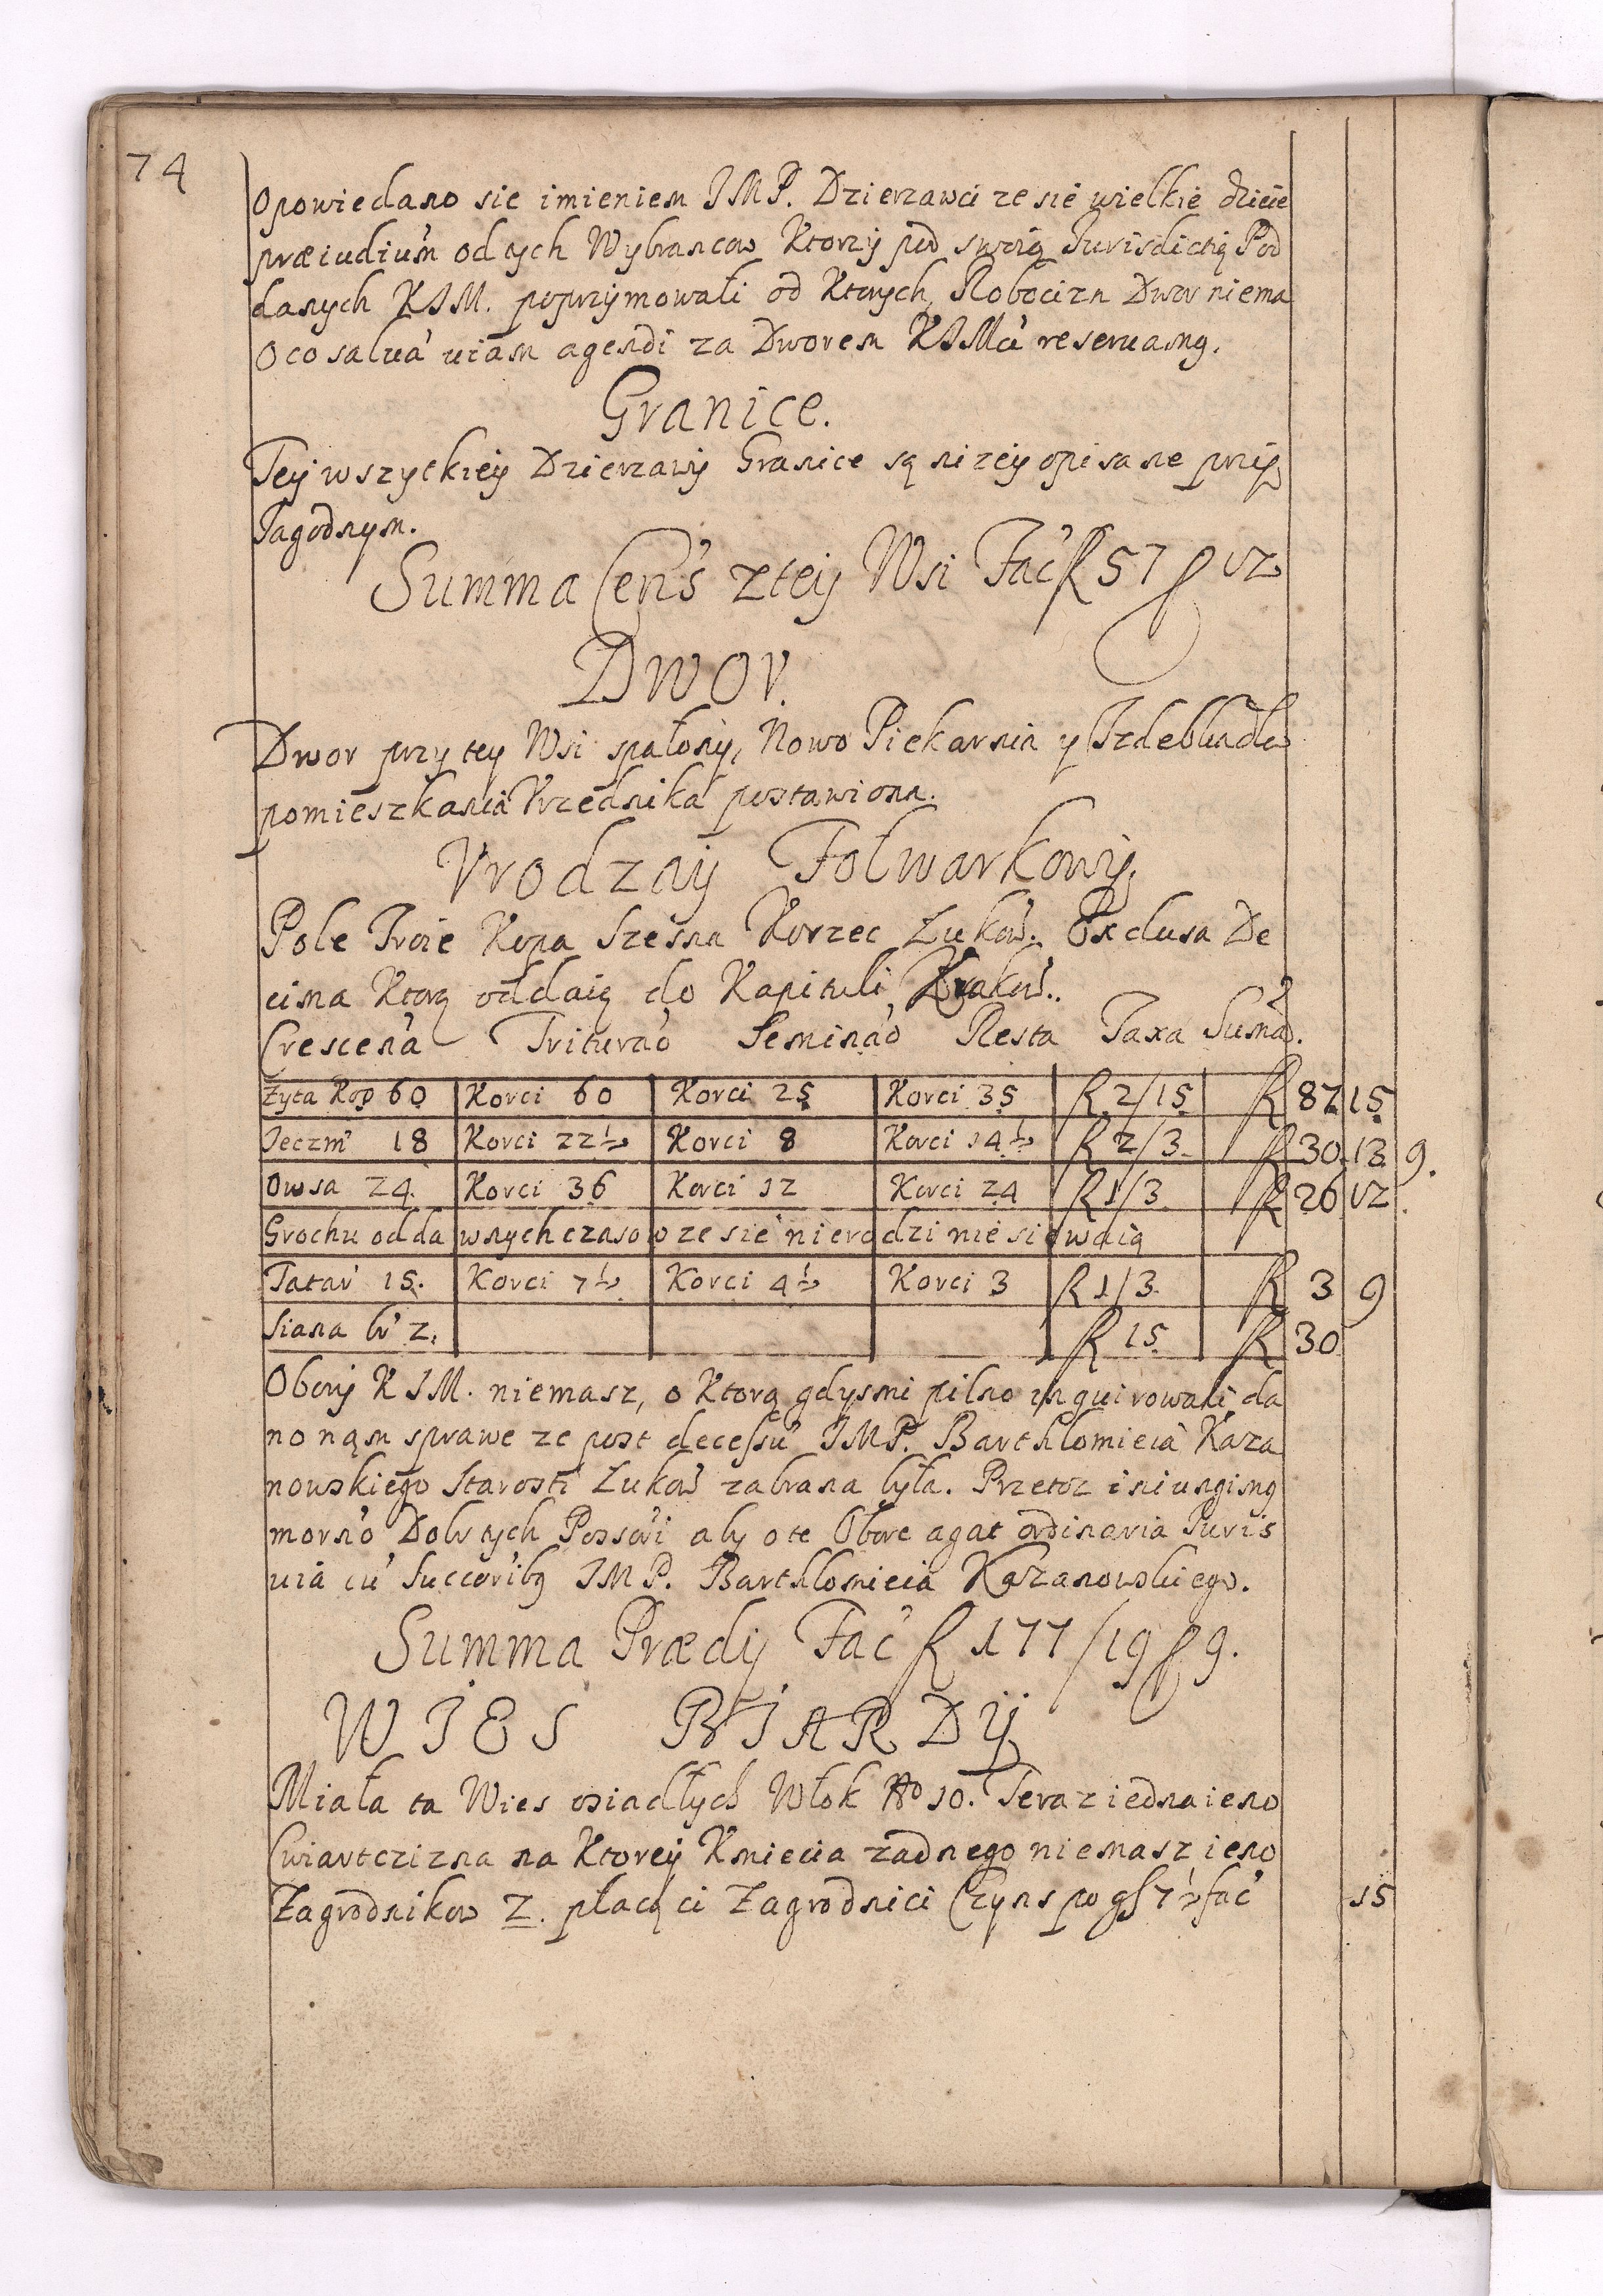 74
Opowiedano sie imieniem JMP. Dzierzawci ze sie wielkie dzieie
præiudiu'm od tych Wybrancow Ktorzÿ pod swoią Jurisdictią Pod
danych KJM. poprzÿmowali od Ktorych Robocizn Dwor niema
O co saluá uiam agendi za Dworem KJMci reseruamg.
Granice.
Teÿ wszytkieÿ Dzierzawÿ Granice są nizeÿ opisane przÿ
Jagodnym.
Summa Cens' z teÿ Wsi Fac' f 57 g 12
Dwor.
Dwor przy tey Wsi spalonÿ, Nowo Piekarnia y Izdebka dla
pomieszkania Vrzednika postawiona.
Vrodzaÿ Folwarkowÿ
Pole Troie Kopa Szesna Korzec Lukow. Exclusa De
cima Ktorą oddaią do Kapituli Krakow.
Crescena Triturao Seminao Resta Taxa Suma.
Zyta Kop 60 Korci 60 Korci 25 Korci 35 f 2/15 f 87 15
Jeczm' 18 Korci 22½ Korci 8 Korci 14½ f 2/3 f 30 13 9.
Owsa 24. Korci 36 Korci 12 Korci 24 f 1/3 f 26 12
Grochu od dawnych czasow ze sie nierodzi nie siewaią
Tatar' 15. Korci 7½ Korci 4½ Korci 3 f 1/3 f 3 9
Siana br' 2. f 15 f 30
Oborÿ KJM. niemasz, o Ktorą gdysmi pilno inquirowali da
no nąm sprawe ze post decessu' JMP. Barthlomieia Kaza
nowskiego Starosti Lukow zabrana byla. Przetoz iniungimg
morno Dobr tych Possori aby o te Obore agat ordinaria Juris
uiá cu' Succoribg JMP. Barthlomieia Kazanowskiego.
Summa Prædÿ Fac' f 177/19 g 9.
WIES BIARDŸ
Miała ta Wies osiadłych Włok No 10. Teraz iedna ieno
Cwiartczizna na Ktoreÿ Kmiecia zadnego niemasz ieno
Zagrodnikow 2. płacą ci Zagrodnici Czyns po gs 7½ fac' 15